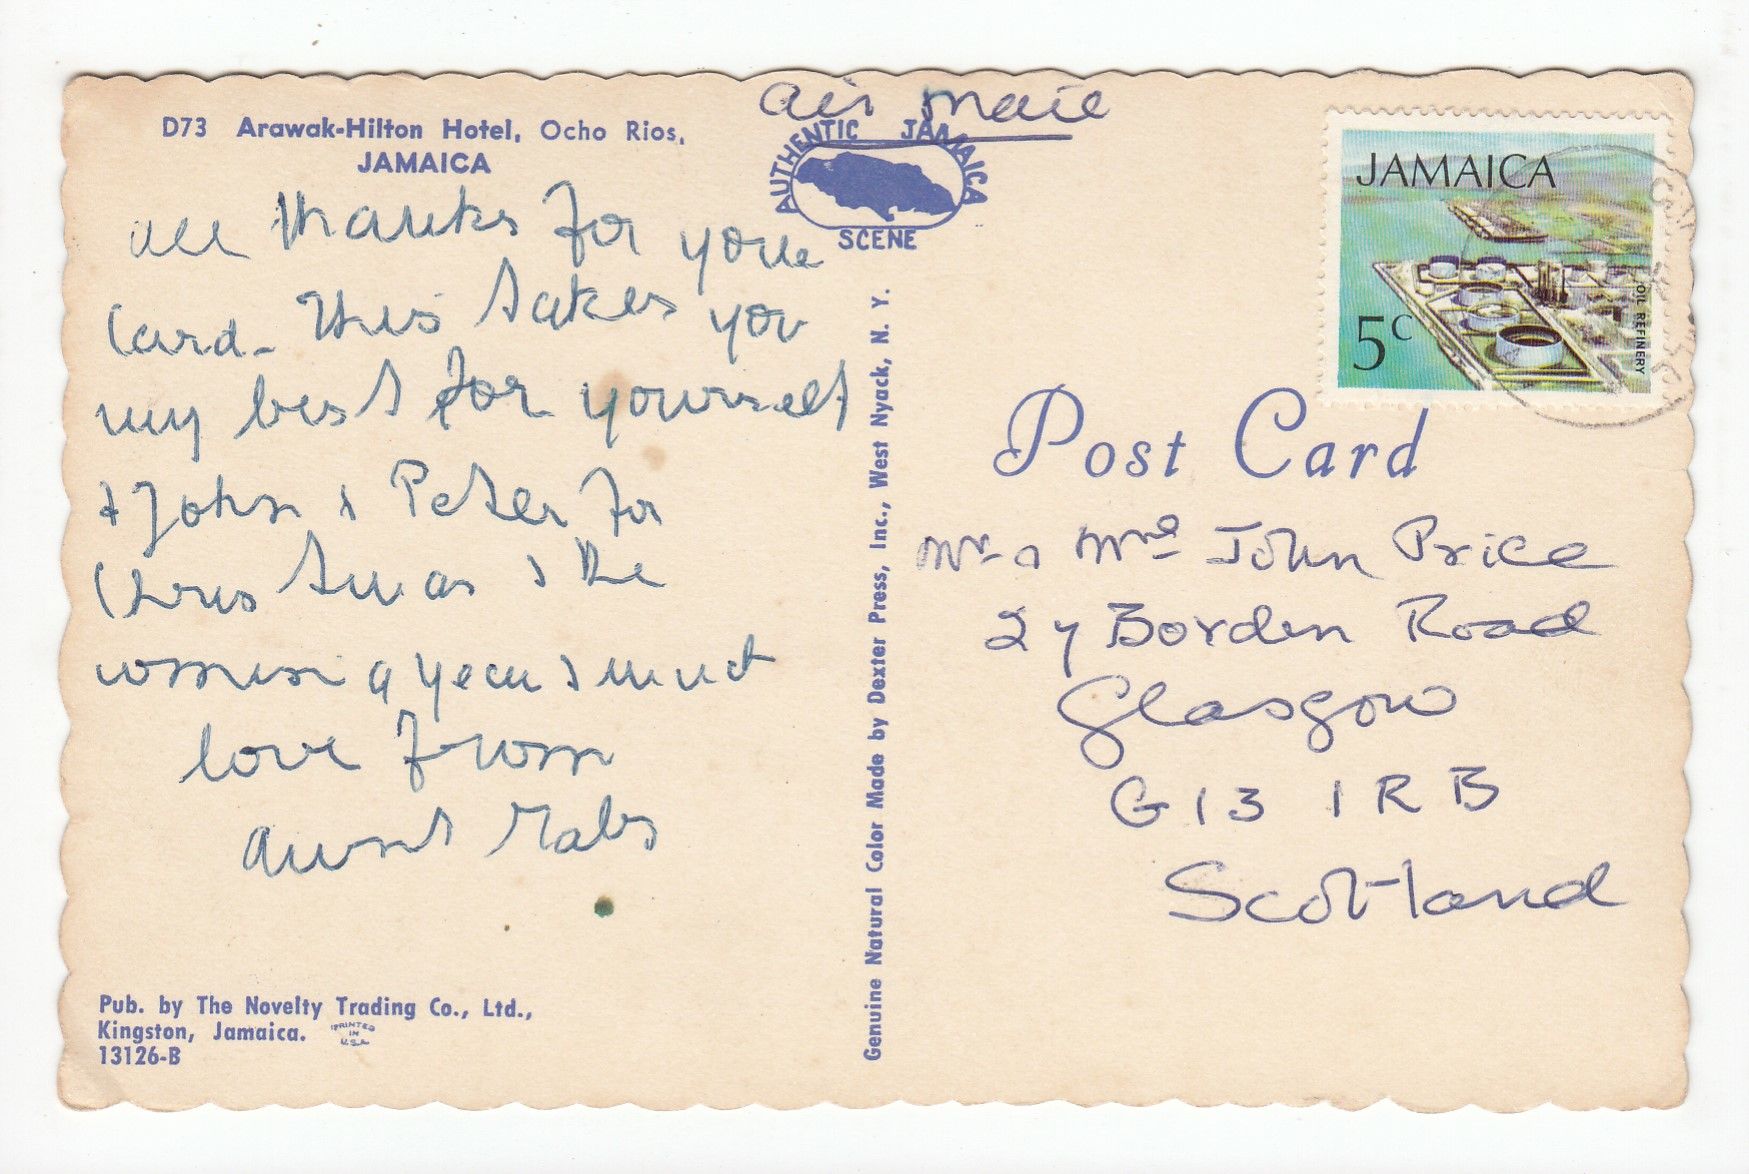 D73 Arawak-Hilton Hotel, Ocho Rios,
JAMAICA
air mail
AUTHENTIC JAMAICA
SCENE
all thanks for your
Card - This takes you
my best for yourself
& John & Peter for
Christmas & the
coming year & much
love from
aunt Mabs
Pub. by The Novelty Trading Co., Ltd.,
Kingston, Jamaica.
PRINTED
IN
U.S.A.
13126-B
Genuine Natural Color Made by Dexter Press, Inc., West Nyack, N. Y.
JAMAICA
5c
OIL REFINERY
Post Card
Mr & Mrs John Price
27 Borden Road
Glasgow
G13 1RB
Scotland